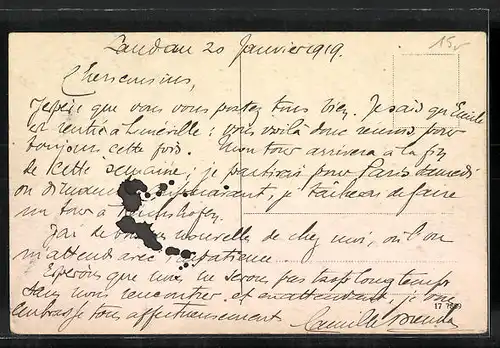 Landau 20 Janvier 1919.
15,-
Chers cousins,
J'espère que vous vous portez tous bien. Je sais qu'Emile
est rentré à Lunéville ; vous voilà donc réunis pour
toujours cette fois. Mon tour arrivera à la fin
de cette semaine ; je partirai pour Paris samedi
ou dimanche. En passant, je tâcherai de faire
un tour à
J'ai de bonnes nouvelles de chez moi, où l'on
m'attend avec impatience.
Espérons que nous ne serons pas trop longtemps
sans nous rencontrer, et en attendant, je vous
embrasse tous affectueusement
Camille
17